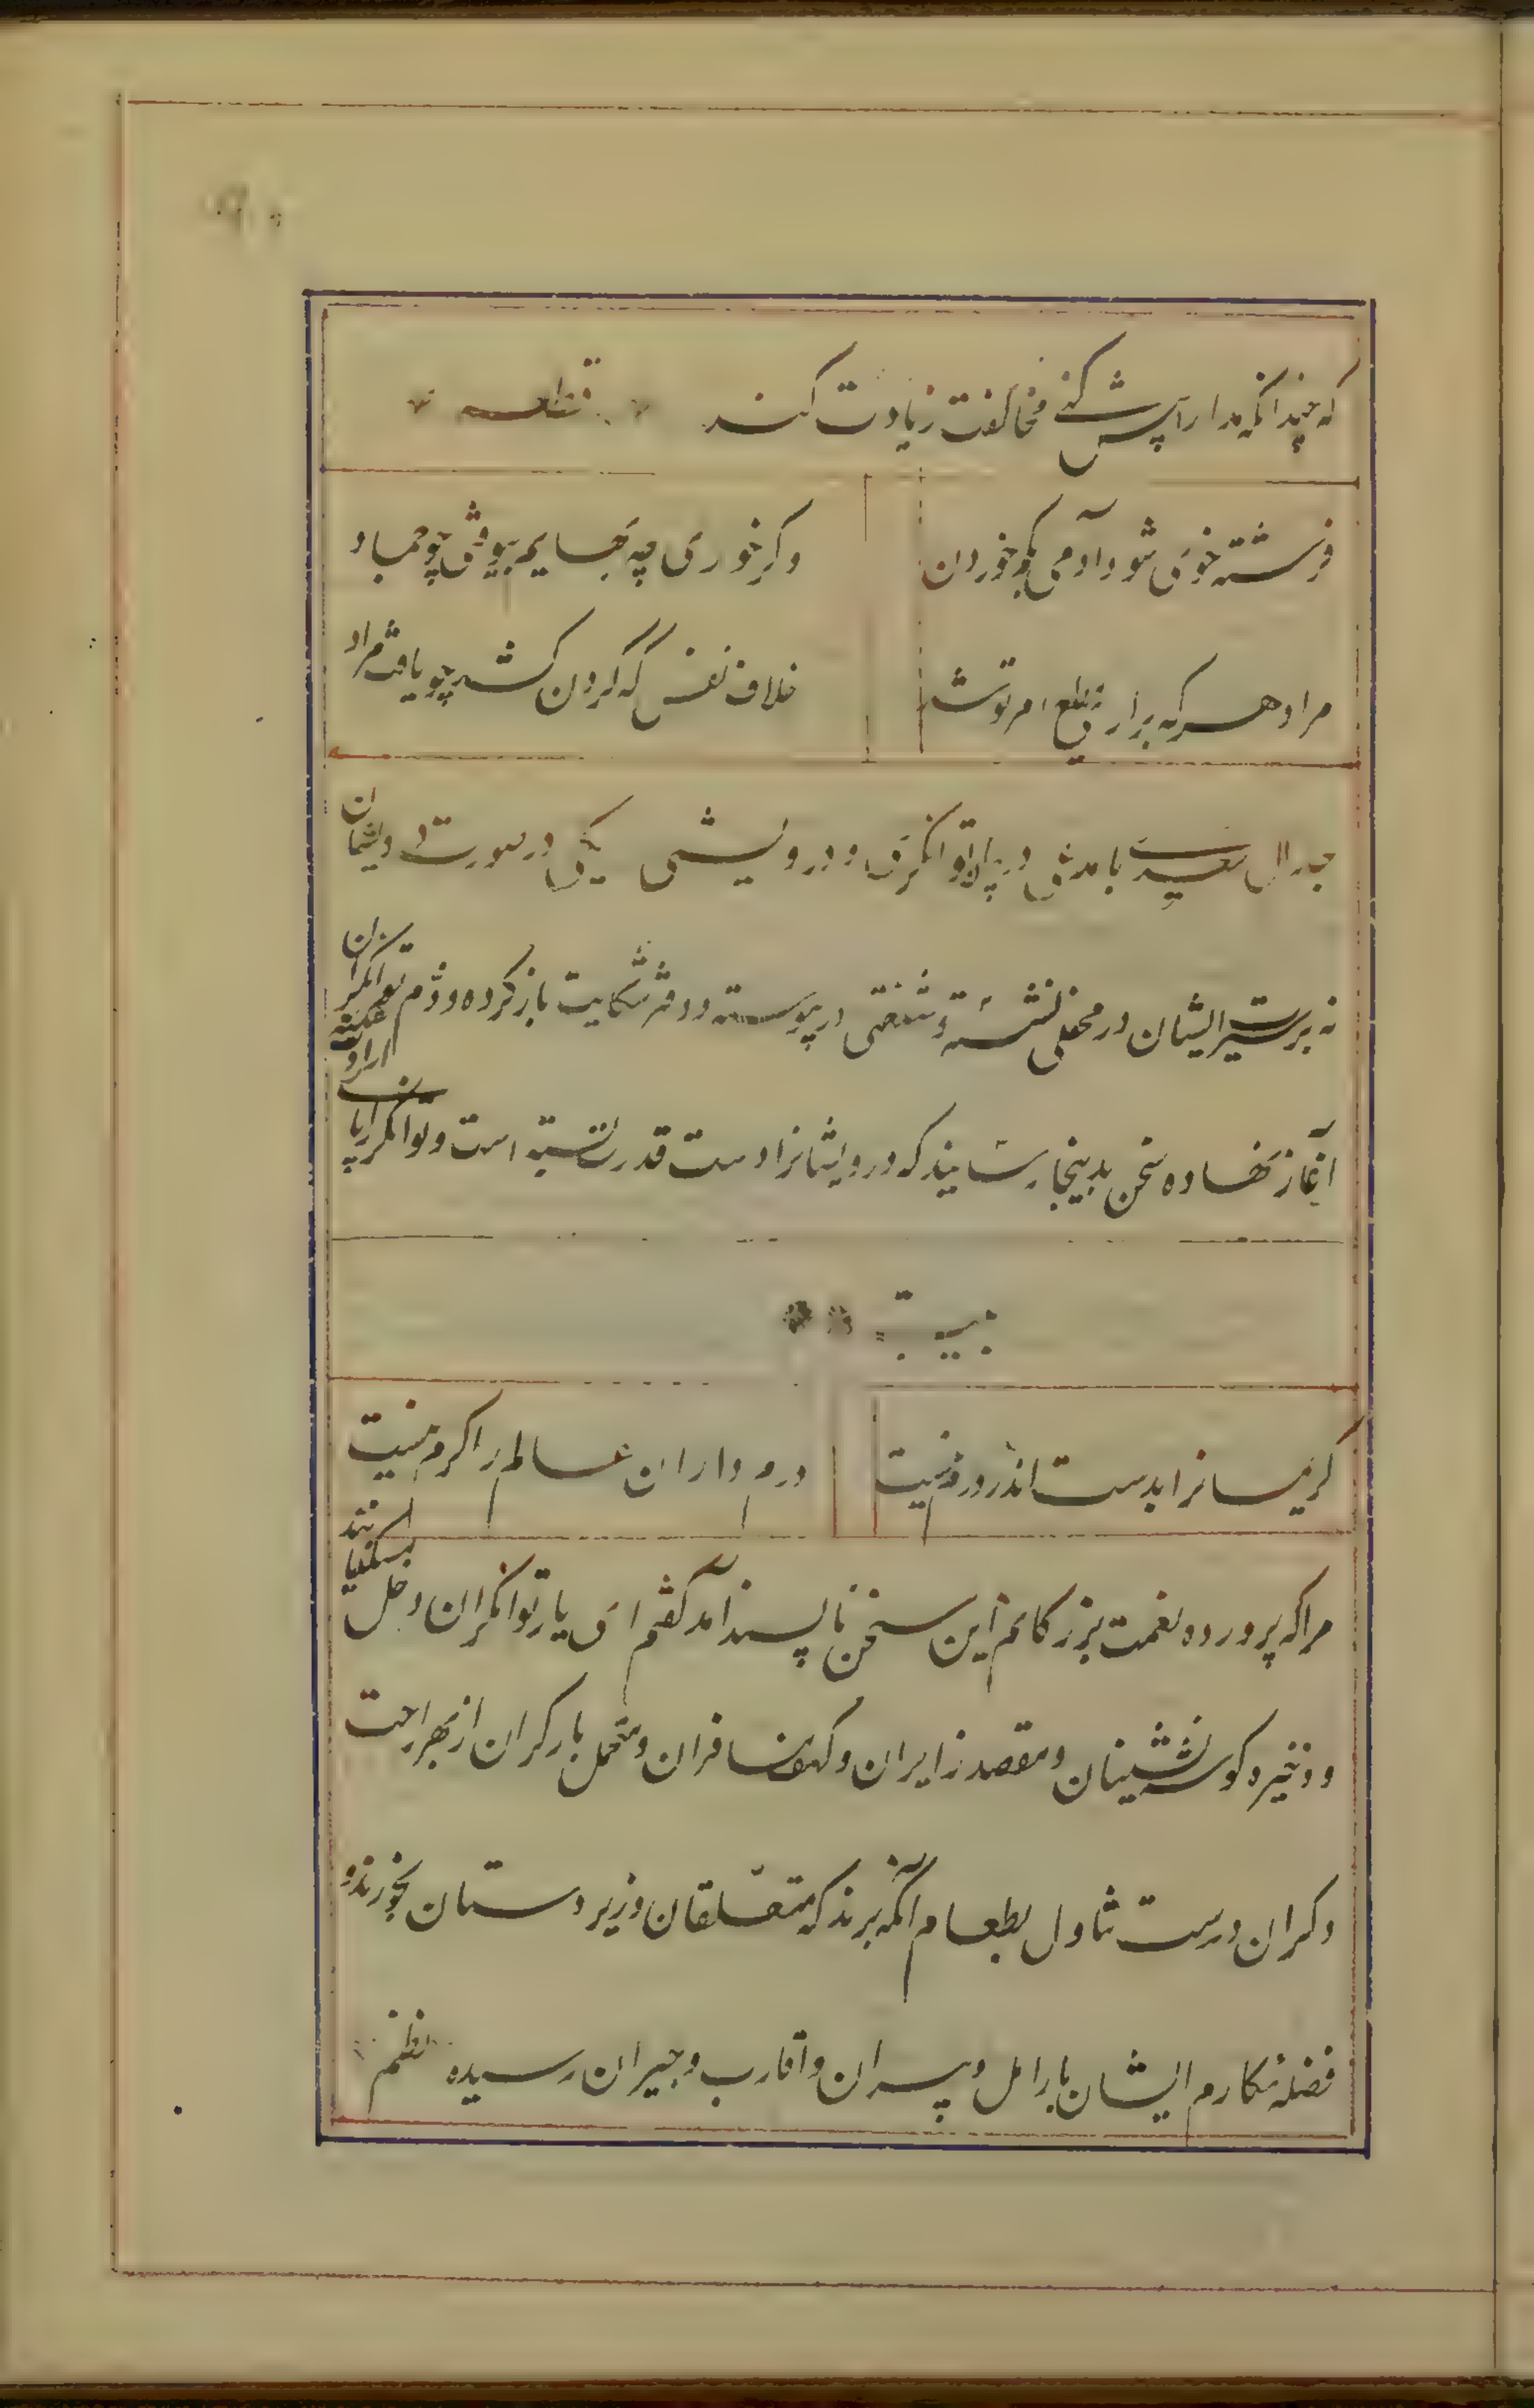 که چندانکه مدارا پیش کنی مخالفت زیادت کند قطعه
فرشته خوی شود آدمی بکم خوردن
وگر خورد چه بهایم بیوفتد چو جماد
مراد هر که براری مطیع امر تو شد
خلاف نفس که گردن کشد چو یافت مراد
جدال سعدی با مدعی در بیان توانگری و درویشی یکی در صورت درویشان
نه بر سیرت ایشان در محفلی نشسته و شنعتی در پیوسته و دفتر شکایت باز کرده و ذم توانگران
آغاز نهاده سخن بدینجا رسانیده که درویشانرا دست قدرت بسته است و توانگررا پای ارادت شکسته
بیت
کریمانرا بدست اندر درم نیست
درم داران عالم را کرم نیست
مرا که پرورده نعمت بزرگانم این سخن ناپسند آمد گفتم ای یار توانگران دخل مسکینانند
و ذخیره گوشه نشینان و مقصد زایران و کهف مسافران و متحمل بار گران از بهر راحت
دگران دست تناول بطعام آنگه برند که متعلقان و زیردستان بخورند و
فضله مکارم ایشان بارامل و پیران و اقارب و جیران رسیده نظم